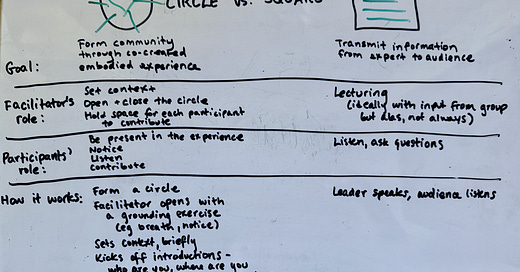 CIRCLE VS. SQUARE
Goal:
Form community
through co-created
embodied experience
Transmit information
from expert to audience
Facilitator's
role:
Set context
Open + close the circle
Hold space for each participant
to contribute
Lecturing
(ideally with input from group
but alas, not always)
Participants'
role:
Be present in the experience
Notice
Listen
Contribute
Listen, ask questions
How it works:
Form a circle
Facilitator opens with
a grounding exercise
(eg breath, notice)
Sets context, briefly
Kicks off introductions -
who are you, where are you
Leader speaks, audience listens